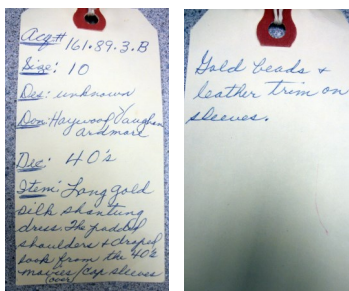 Acq# 161.89.3.B
Size: 10
Des: unknown
Don: Haywood Vaughan
ardmore
Dec: 40's
Item: Long gold
silk shantung
dress. The padded
shoulders & draped
look from the 40's
movies/cap sleeves
(over)
Gold beads &
leather trim on
sleeves.